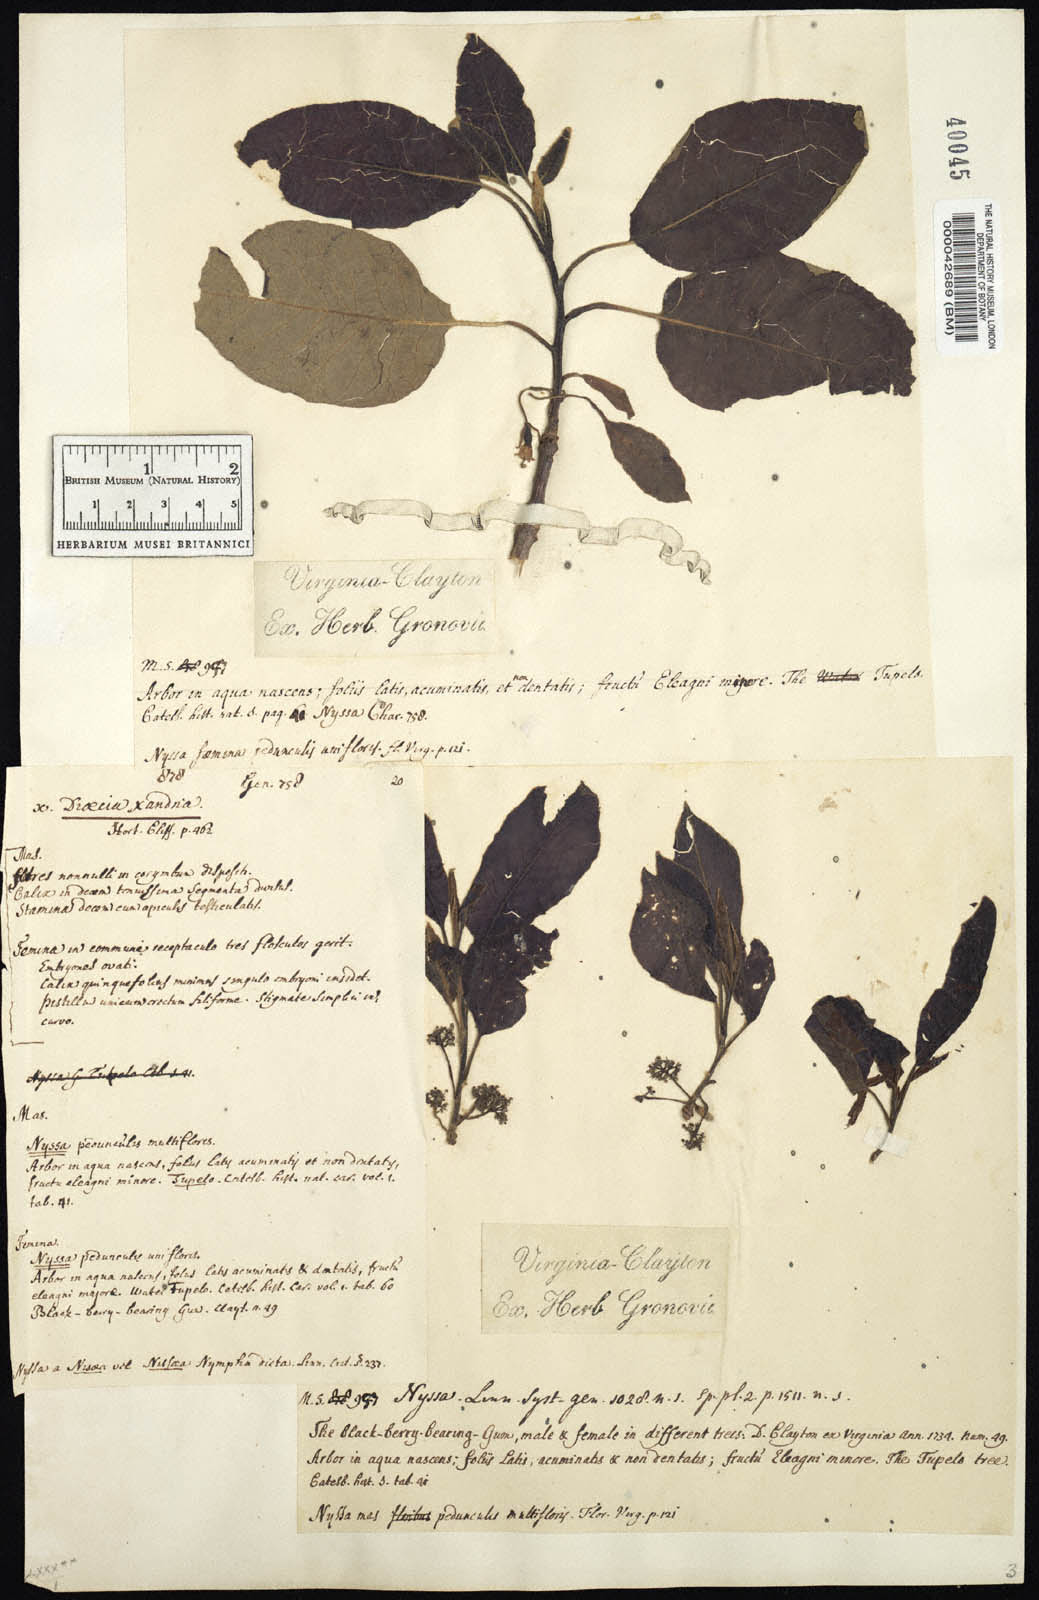 40045
THE NATURAL HISTORY MUSEUM, LONDON
DEPARTMENT OF BOTANY
000042689 (BM)
1 2
BRITISH MUSEUM (NATURAL HISTORY)
1 2 3 4 5
HERBARIUM MUSEI BRITANNICI
Virginia-Clayton
Ex. Herb. Gronovii
M.S.
Arbor in aqua nascens; foliis latis, acuminatis, et non dentatis; fructu Eleagni minore. The Water Tupelo.
Catesb. hist. nat. pag. Nyssa Char. 758.
Nyssa foemina pedunculis unifloris. fl. Virg. p. 121.
878 Gen. 758 20
Dioecia
Hort. Cliff. p. 462
Mas.
flores nonnulli in corymbum
Calix in decem segmenta
Stamina decem cum
Femina in communi receptaculo tres flosculos gerit.
Embryones ovati.
Calix quinquefolius minimus singulo embryoni insidet.
Pistillu unicum erectum filiforme. Stigmate simplici
curvo.
Nyssa Tupelo
Mas.
Nyssa pedunculis multifloris.
Arbor in aqua nascens, foliis latis acuminatis et non dentatis,
fructu eleagni minore. Tupelo. Catesb. hist. nat. car. vol. 1.
tab. 41.
Femina.
Nyssa pedunculis unifloris.
Arbor in aqua nascens, foliis latis acuminatis & dentatis, fructu
eleagni majore. Water Tupelo. Catesb. hist. Car. vol. 1. tab. 60
Black-berry-bearing Gum. Clayt. n. 49
Nyssa a Nisaea vel Nissaea Nympha dicta. Linn. 237.
Virginia-Clayton
Ex. Herb Gronovii
M.S. Nyssa. Linn. Syst. gen. 1028. n. 1. Sp. pl. 2. p. 1511. n. 1.
The black-berry-bearing-Gum, male & female in different trees. D. Clayton ex Virginia Ann. 1734. Num. 49.
Arbor in aqua nascens; foliis latis, acuminatis & non dentatis; fructu Eleagni minore. The Tupelo tree.
Catesb. hist. tab. 41
Nyssa mas floribus pedunculis multifloris. Flor. Virg. p. 121
3